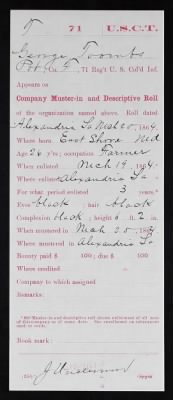 T 71 U.S.C.T.
George Toombs
Pvt, Co. , 71 Reg't U. S. Col'd Inf.
Appears on
Company Muster-in and Descriptive Roll
of the organization named above. Roll dated
Alexandria La Mch 25, 1864.
Where born East Shore Md
Age 26 y'rs; occupation Farmer
When enlisted Mch 19, 1864.
Where enlisted Alexandria La
For what period enlisted 3 years.*
Eyes black; hair black
Complexion black; height 6 ft. 2 in.
When mustered in Mch 25, 1864.
Where mustered in Alexandria La
Bounty paid $ 100; due $ 100
Where credited
Company to which assigned
Remarks:
Book mark: